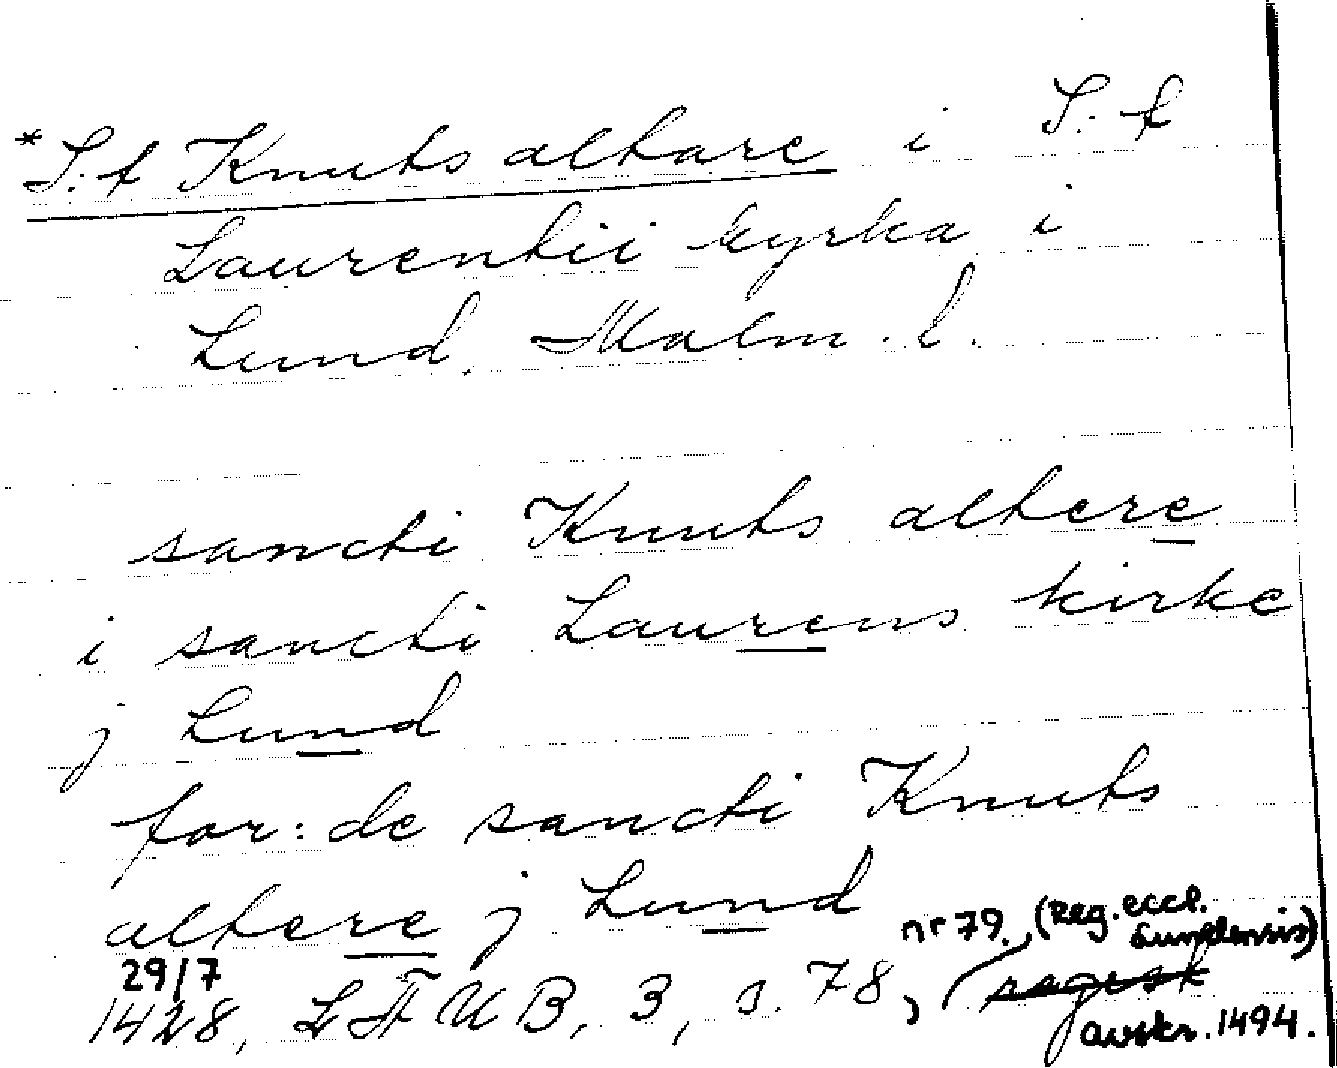 *S:t Knuts altare i S:t
Laurentii kyrka i
Lund, Malm. l.
sancti Knuts altere
i sancti Laurens kirke
j Lund
for:de sancti Knuts
altere j Lund
29/7
1428, LÄUB, 3, s. 78, nr 79. (Reg. eccl. Lundensis)
avskr. 1494.